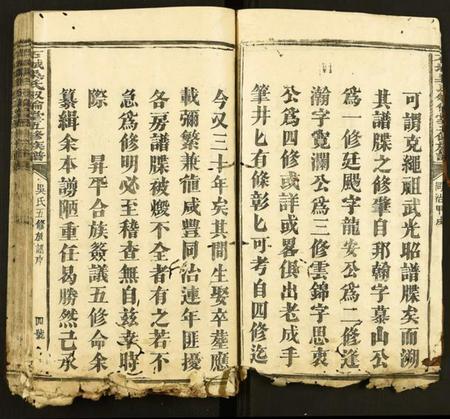 可謂克繩祖武光昭譜牒矣而溯
其譜牒之修肇自邦翰字慕山公
為一修廷颺字龍安公為二修逢
瀚字寬瀾公為三修雲錦字思衷
公為四修或詳或畧俱出老成手
筆井匕有條彰匕可考自四修迄
今又三十年矣其間生娶卒塟應
載彌繁兼値咸豐同治連年匪擾
各房譜牒被燬不全者有之若不
急為修明必至稽查無自兹幸時
際 昇平合族僉議五修命余
纂緝余本謭陋重任曷勝然已承
吳氏五修族譜序
四號